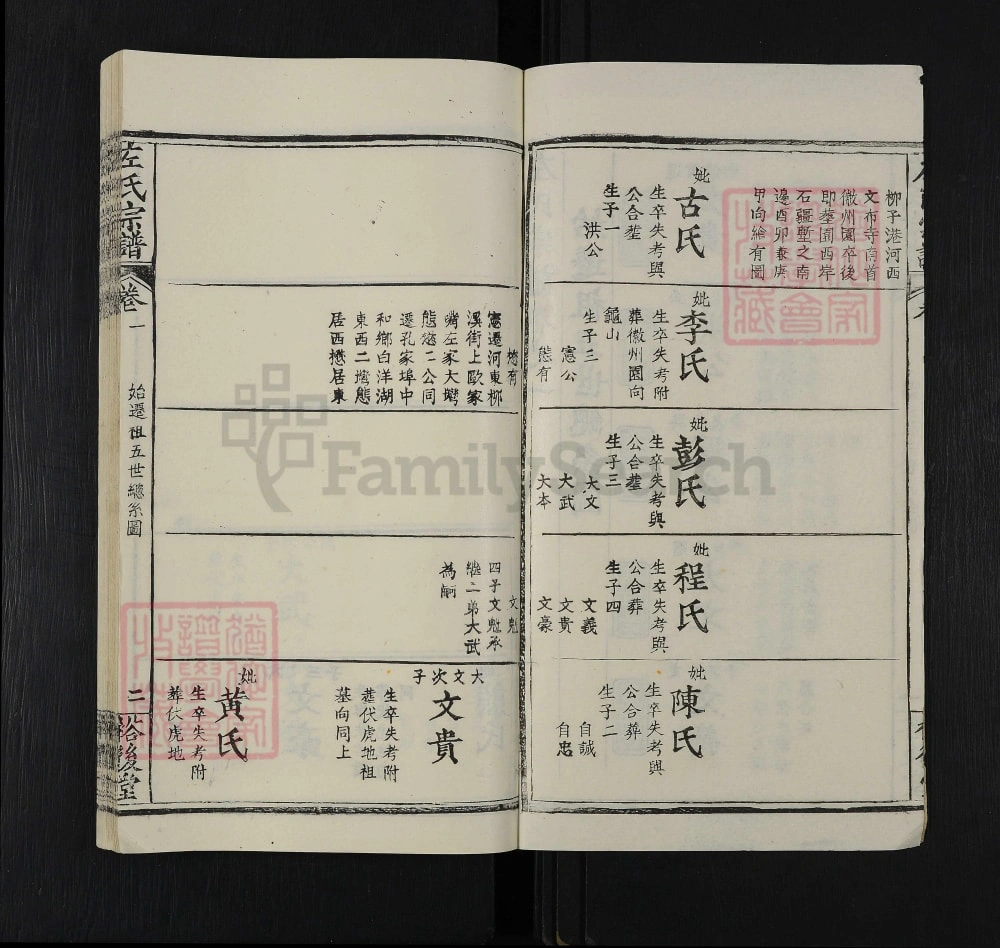 柳子港河西
文布寺南首
徽州園卒後
即塟園西岸
石疆塹之南
邊酉卯兼庚
甲向繪有圖
妣
古氏
生卒失考與
公合塟
生子一
洪公
妣
李氏
生卒失考附
葬徽州園向
龜山
生子三
憲公
態有
妣
彭氏
生卒失考與
公合塟
生子三
大文
大武
大本
妣
程氏
生卒失考與
公合葬
生子四
文義
文貴
文豪
妣
陳氏
生卒失考與
公合葬
生子二
自誠
自忠
懋有
憲遷河東柳
溪街上歐家
嘴左家大塆
態懋二公同
遷孔家埠中
和鄉白洋湖
東西二塆態
居西懋居東
文魁
四子文魁承
繼二弟大武
為嗣
大文次子
文貴
生卒失考附
塟伏虎地祖
墓向同上
妣
黃氏
生卒失考附
葬伏虎地
左氏宗譜
卷一
始遷祖五世總系圖
二
裕後堂
FamilySearch